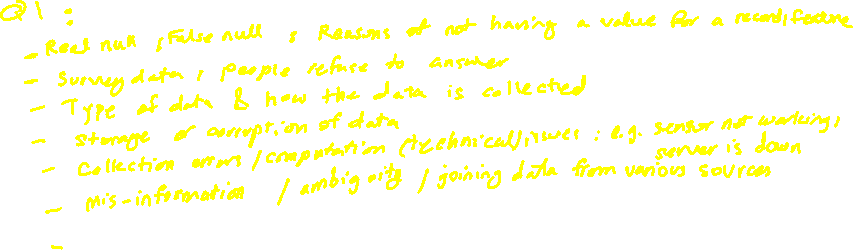 Q1:
- Real null, False null : Reasons of not having a value for a record, feature
- Survey data, people refuse to answer
- Type of data & how the data is collected
- storage or corruption of data
- Collection errors / computation (technical) issues : e.g. sensor not working, server is down
- Mis-information / ambiguity / joining data from various sources
-